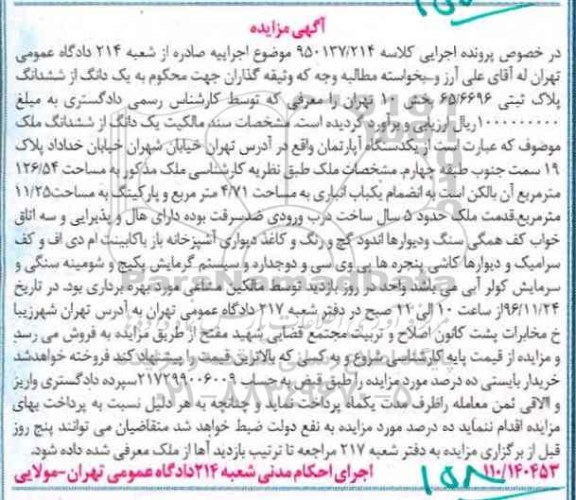 آگهی مزایده
در خصوص پرونده اجرایی کلاسه ۹۵۰۱۳۷/۲۱۴ موضوع اجراییه صادره از شعبه ۲۱۴ دادگاه عمومی
تهران له آقای علی آرز و بخواسته مطالبه وجه که وثیقه گذاران جهت محکوم به یک دانگ از ششدانگ
پلاک ثبتی ۶۵/۶۶۹۶ بخش ۱۰ تهران را معرفی که توسط کارشناس رسمی دادگستری به مبلغ
۱۰۰۰۰۰۰۰۰۰ ریال ارزیابی و برآورد گردیده است. مشخصات سند مالکیت یک دانگ از ششدانگ ملک
موصوف که عبارت است از یکدستگاه آپارتمان واقع در آدرس تهران خیابان شهران خیابان خداداد پلاک
۱۹ سمت جنوب طبقه چهارم. مشخصات ملک طبق نظریه کارشناسی ملک مذکور به مساحت ۱۲۶/۵۴
مترمربع آن بالکن است به انضمام یکباب انباری به مساحت ۴/۷۱ متر مربع و پارکینگ به مساحت ۱۱/۲۵
مترمربع.قدمت ملک حدود ۵ سال ساخت درب ورودی ضدسرقت بوده دارای هال و پذیرایی و سه اتاق
خواب کف همگی سنگ ودیوارها اندود گچ و رنگ و کاغذ دیواری آشپزخانه باز باکابینت ام دی اف و کف
سرامیک و دیوارها کاشی پنجره ها پی وی سی و دوجداره و سیستم گرمایش پکیج و شومینه سنگی و
سرمایش کولر آبی می باشد واحد در روز بازدید توسط مالکین مشاعی مورد بهره برداری بود. در تاریخ
۹۶/۱۱/۲۴از ساعت ۱۰ الی ۱۲ صبح در دفتر شعبه ۲۱۷ دادگاه عمومی تهران به آدرس تهران شهرزیبا
خ مخابرات پشت کانون اصلاح و تربیت مجتمع قضایی شهید مفتح از طریق مزایده به فروش می رسد
و مزایده از قیمت پایه کارشناسی شروع و به کسی که بالاترین قیمت را پیشنهاد کند فروخته خواهدشد
خریدار بایستی ده درصد مورد مزایده را طبق قبض به حساب ۲۱۷۲۹۹۰۰۶۰۰۹ سپرده دادگستری واریز
و الاقی ثمن معامله راظرف مدت یکماه پرداخت نماید و چنانچه به هر دلیل نسبت به پرداخت بهای
مزایده اقدام ننماید ده درصد مورد مزایده به نفع دولت ضبط خواهد شد متقاضیان می توانند پنج روز
قبل از برگزاری مزایده به دفتر شعبه ۲۱۷ مراجعه تا ترتیب بازدید آنها از ملک معرفی شده داده شود.
۱۱۰/۱۴۰۴۵۳ اجرای احکام مدنی شعبه ۲۱۴دادگاه عمومی تهران-مولایی